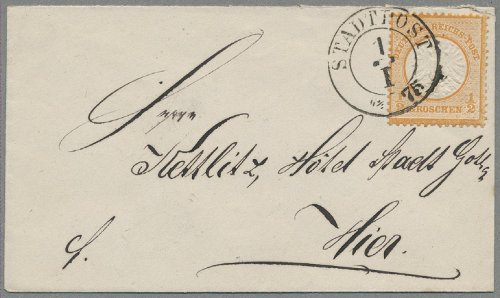 STADTPOST
1
I
75
REICHS-POST
1/2 GROSCHEN 1/2
Herrn
Kettlitz, Hôtel Stadt Gotha
Hier.